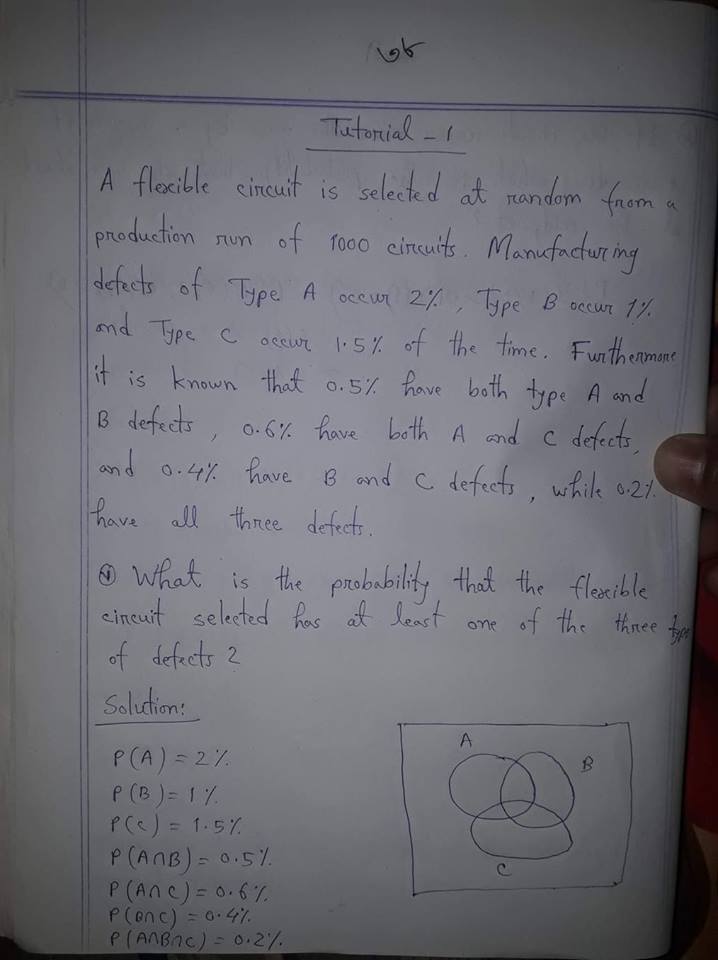 ৩৮
Tutorial - 1
A flexible circuit is selected at random from a
production run of 1000 circuits. Manufacturing
defects of Type A occur 2%, Type B occur 1%
and Type C occur 1.5% of the time. Furthermore
it is known that 0.5% have both type A and
B defects, 0.6% have both A and C defects,
and 0.4% have B and C defects, while 0.2%
have all three defects.
What is the probability that the flexible
circuit selected has at least one of the three type
of defects ?
Solution:
P(A) = 2%
P(B) = 1%
P(C) = 1.5%
P(A∩B) = 0.5%
P(A∩C) = 0.6%
P(B∩C) = 0.4%
P(A∩B∩C) = 0.2%
A
B
C